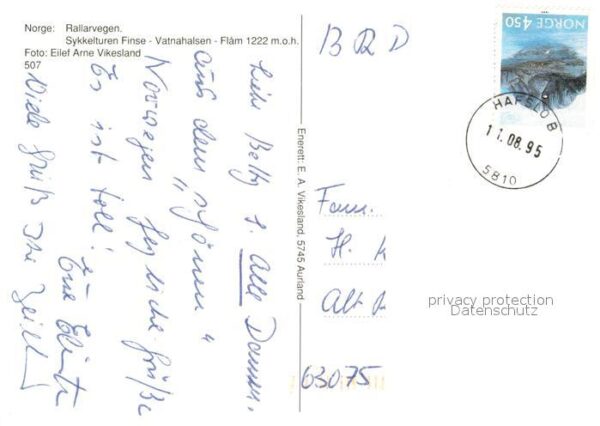 Norge: Rallarvegen.
Sykkelturen Finse - Vatnahalsen - Flåm 1222 m.o.h.
Foto: Eilef Arne Vikesland
507
Liebe Betty u. Alle Damen,
aus dem "schönen"
Norwegen herzliche Grüße
Es ist toll!
Viele Grüße Ihre
Enerett: E. A. Vikesland, 5745 Aurland
BRD
NORGE 4.50
HAFSLO B
11.08.95
5810
Fam.
H. K
Alt
63075
privacy protection
Datenschutz